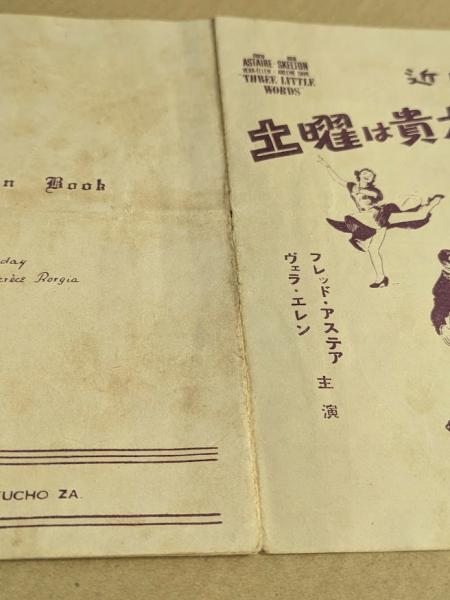 n Book
day
rèce Borgia
UCHO ZA.
FRED RED
ASTAIRE · SKELTON
VERA-ELLEN · ARLENE DAHL
"THREE LITTLE
WORDS"
近
土曜は貴方
フレッド・アステア 主演
ヴェラ・エレン